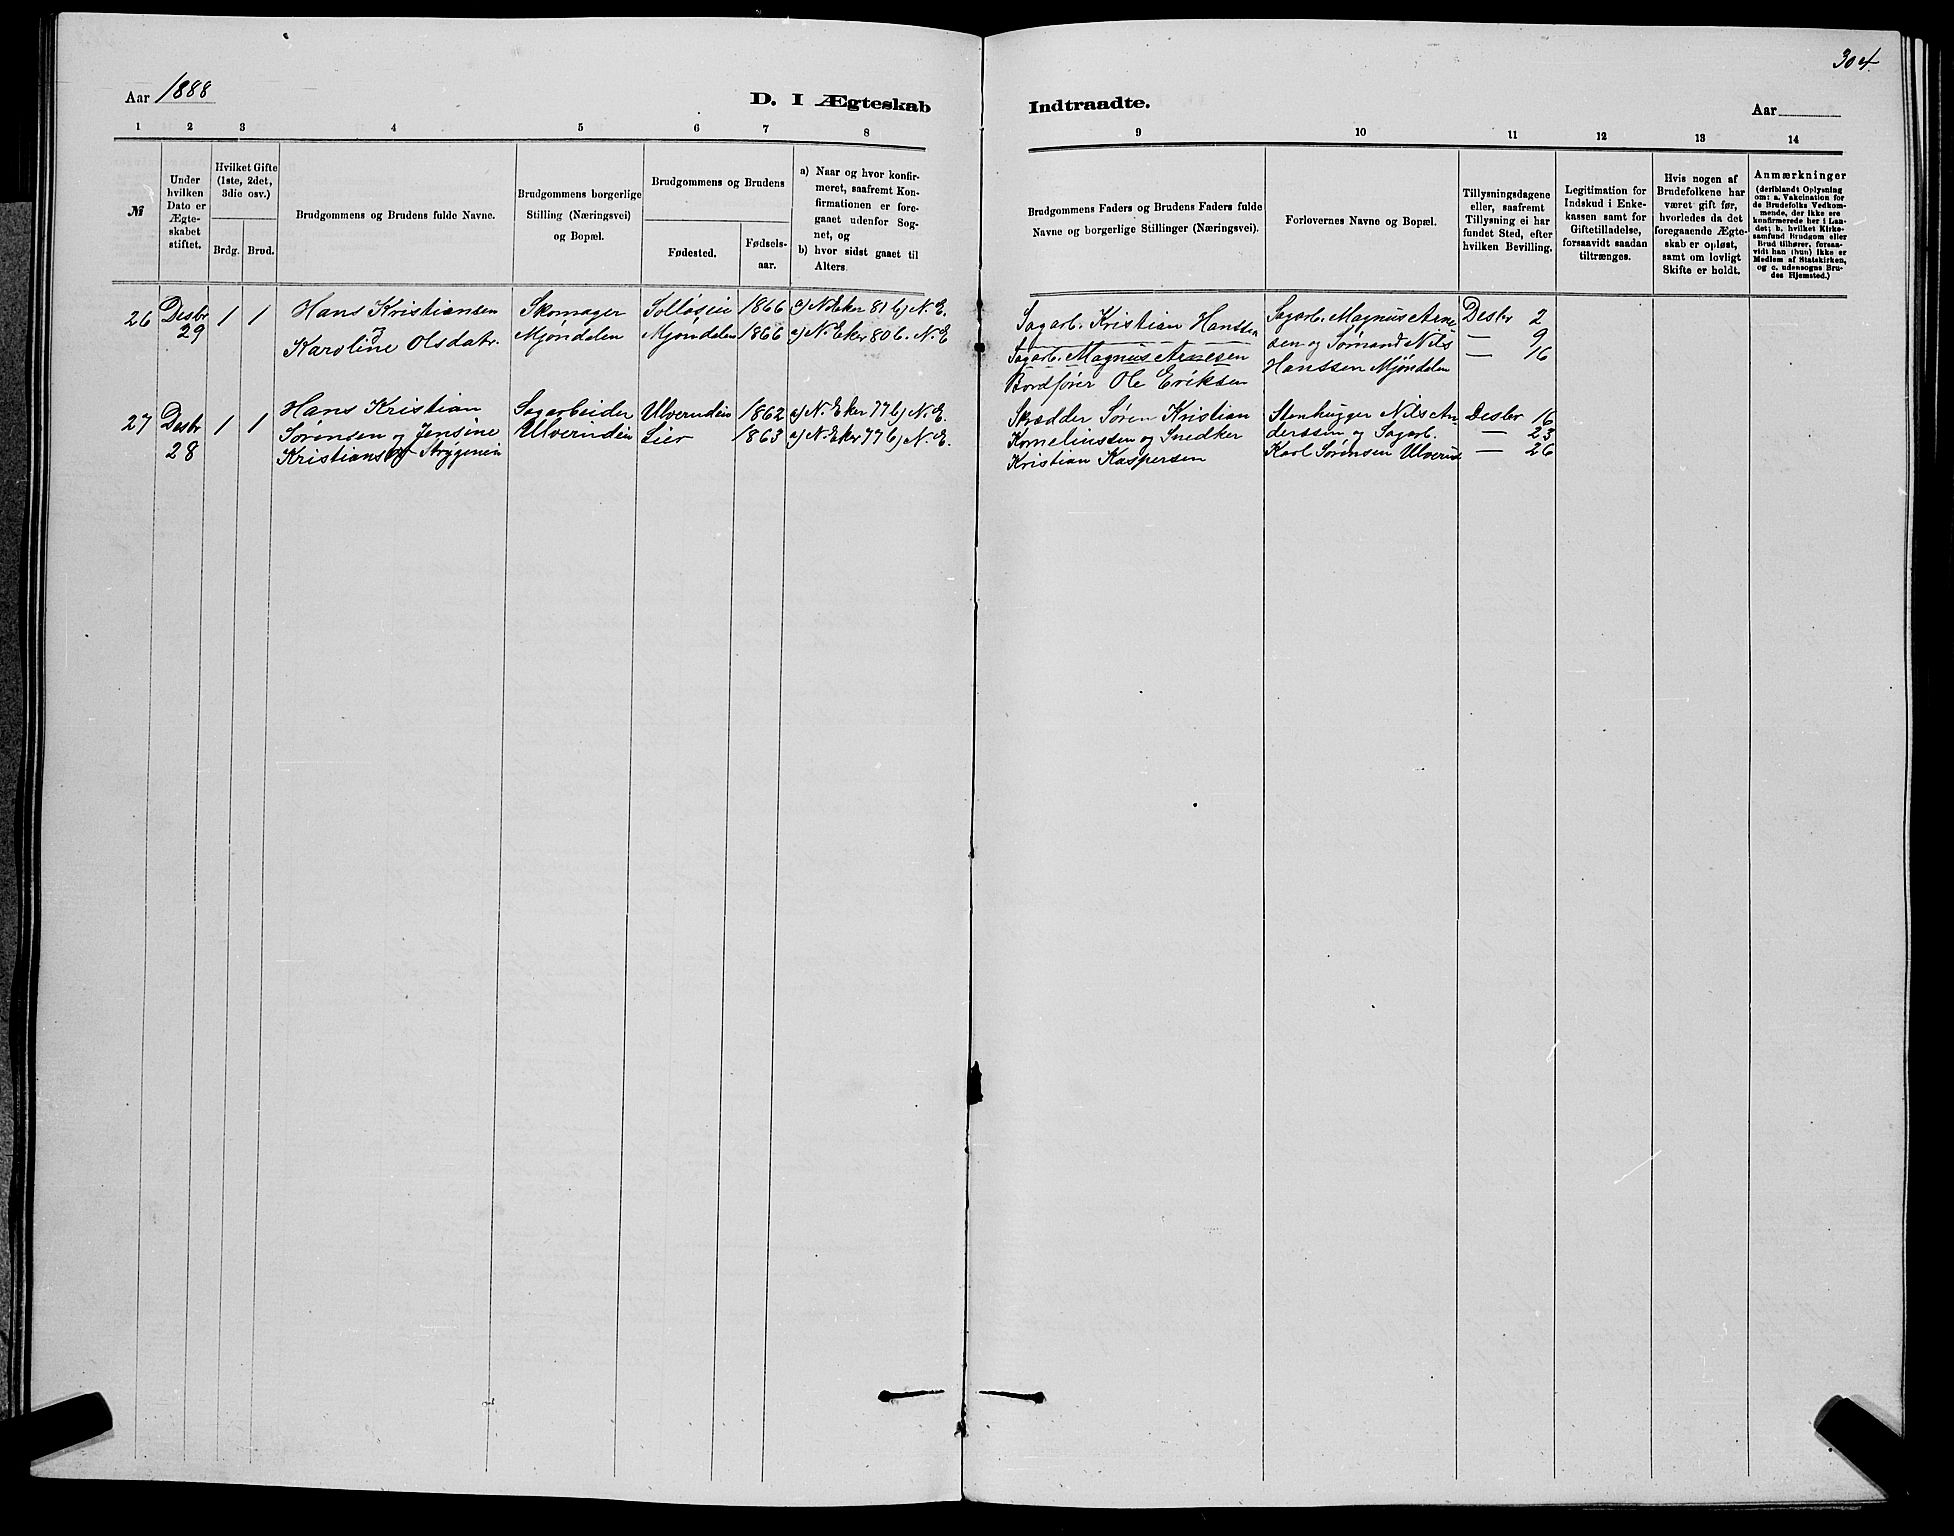 304.
Aar 1888
D. I Ægteskab Indtraadte.
Aar
1 2 3 4 5 6 7 8 9 10 11 12 13 14
№
Under
hvilken
Dato er
Ægte-
skabet
stiftet.
Hvilket Gifte
(1ste, 2det,
3die osv.)
Brdg. Brud.
Brudgommens og Brudens fulde Navne.
Brudgommens borgerlige
Stilling (Næringsvei)
og Bopæl.
Brudgommens og Brudens
Fødested.
Fødsels-
aar.
a) Naar og hvor konfir-
meret, saafremt Kon-
firmationen er fore-
gaaet udenfor Sog-
net, og
b) hvor sidst gaaet til
Alters.
Brudgommens Faders og Brudens Faders fulde
Navne og borgerlige Stillinger (Næringsvei).
Forlovernes Navne og Bopæl.
Tillysningsdagene
eller, saafremt
Tillysning ei har
fundet Sted, efter
hvilken Bevilling.
Legitimation for
Indskud i Enke-
kassen samt for
Giftetilladelse,
forsaavidt saadan
tiltrænges.
Hvis nogen af
Brudefolkene har
været gift før,
hvorledes da det
foregaaende Ægte-
skab er opløst,
samt om lovligt
Skifte er holdt.
Anmærkninger
(deriblandt Oplysning
om: a. Vakcination for
de Brudefolks Vedkom-
mende, der ikke ere
konfirmerede her i Lan-
det; b. hvilket Kirke-
samfund Brudgom eller
Brud tilhører, forsaa-
vidt han (hun) ikke er
Medlem af Statskirken,
og c. udensogns Bru-
des Hjemsted.)
26 Desbr
29
1 1
Hans Kristiansen
og
Karoline Olsdatr.
Skomager
Mjøndalen
Solløseie
Mjøndalen
1866
1866
a) N. Eker 81 b) N. E.
a) N. Eker 80 b. N. E
Sagarb. Kristian Hanssen
Sagarb. Magnus Arnesen
Bordfører Ole Eriksen
Sagarb. Magnus Arne
sen og Sømand Nils
Hanssen Mjøndalen
Desbr 2
— 9
— 16
27 Desbr
28
1 1
Hans Kristian
Sørensen og Jensine
Kristians
Sagarbeider
Ulverudeie
Ulverudeie
Lier
1862
1863
a) N. Eker 77 b) N. E.
a) N. Eker 77 b) N. E.
Skrædder Søren Kristian
Korneliussen og Snedker
Kristian Kaspersen
Stenhugger Nils An
derssen og Sagarb.
Karl Sørensen Ulverud
Desbr 16
— 23
— 26